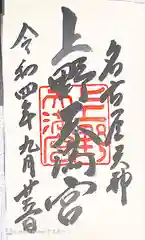 名古屋天神
上野天満宮
令和四年九月廿五日